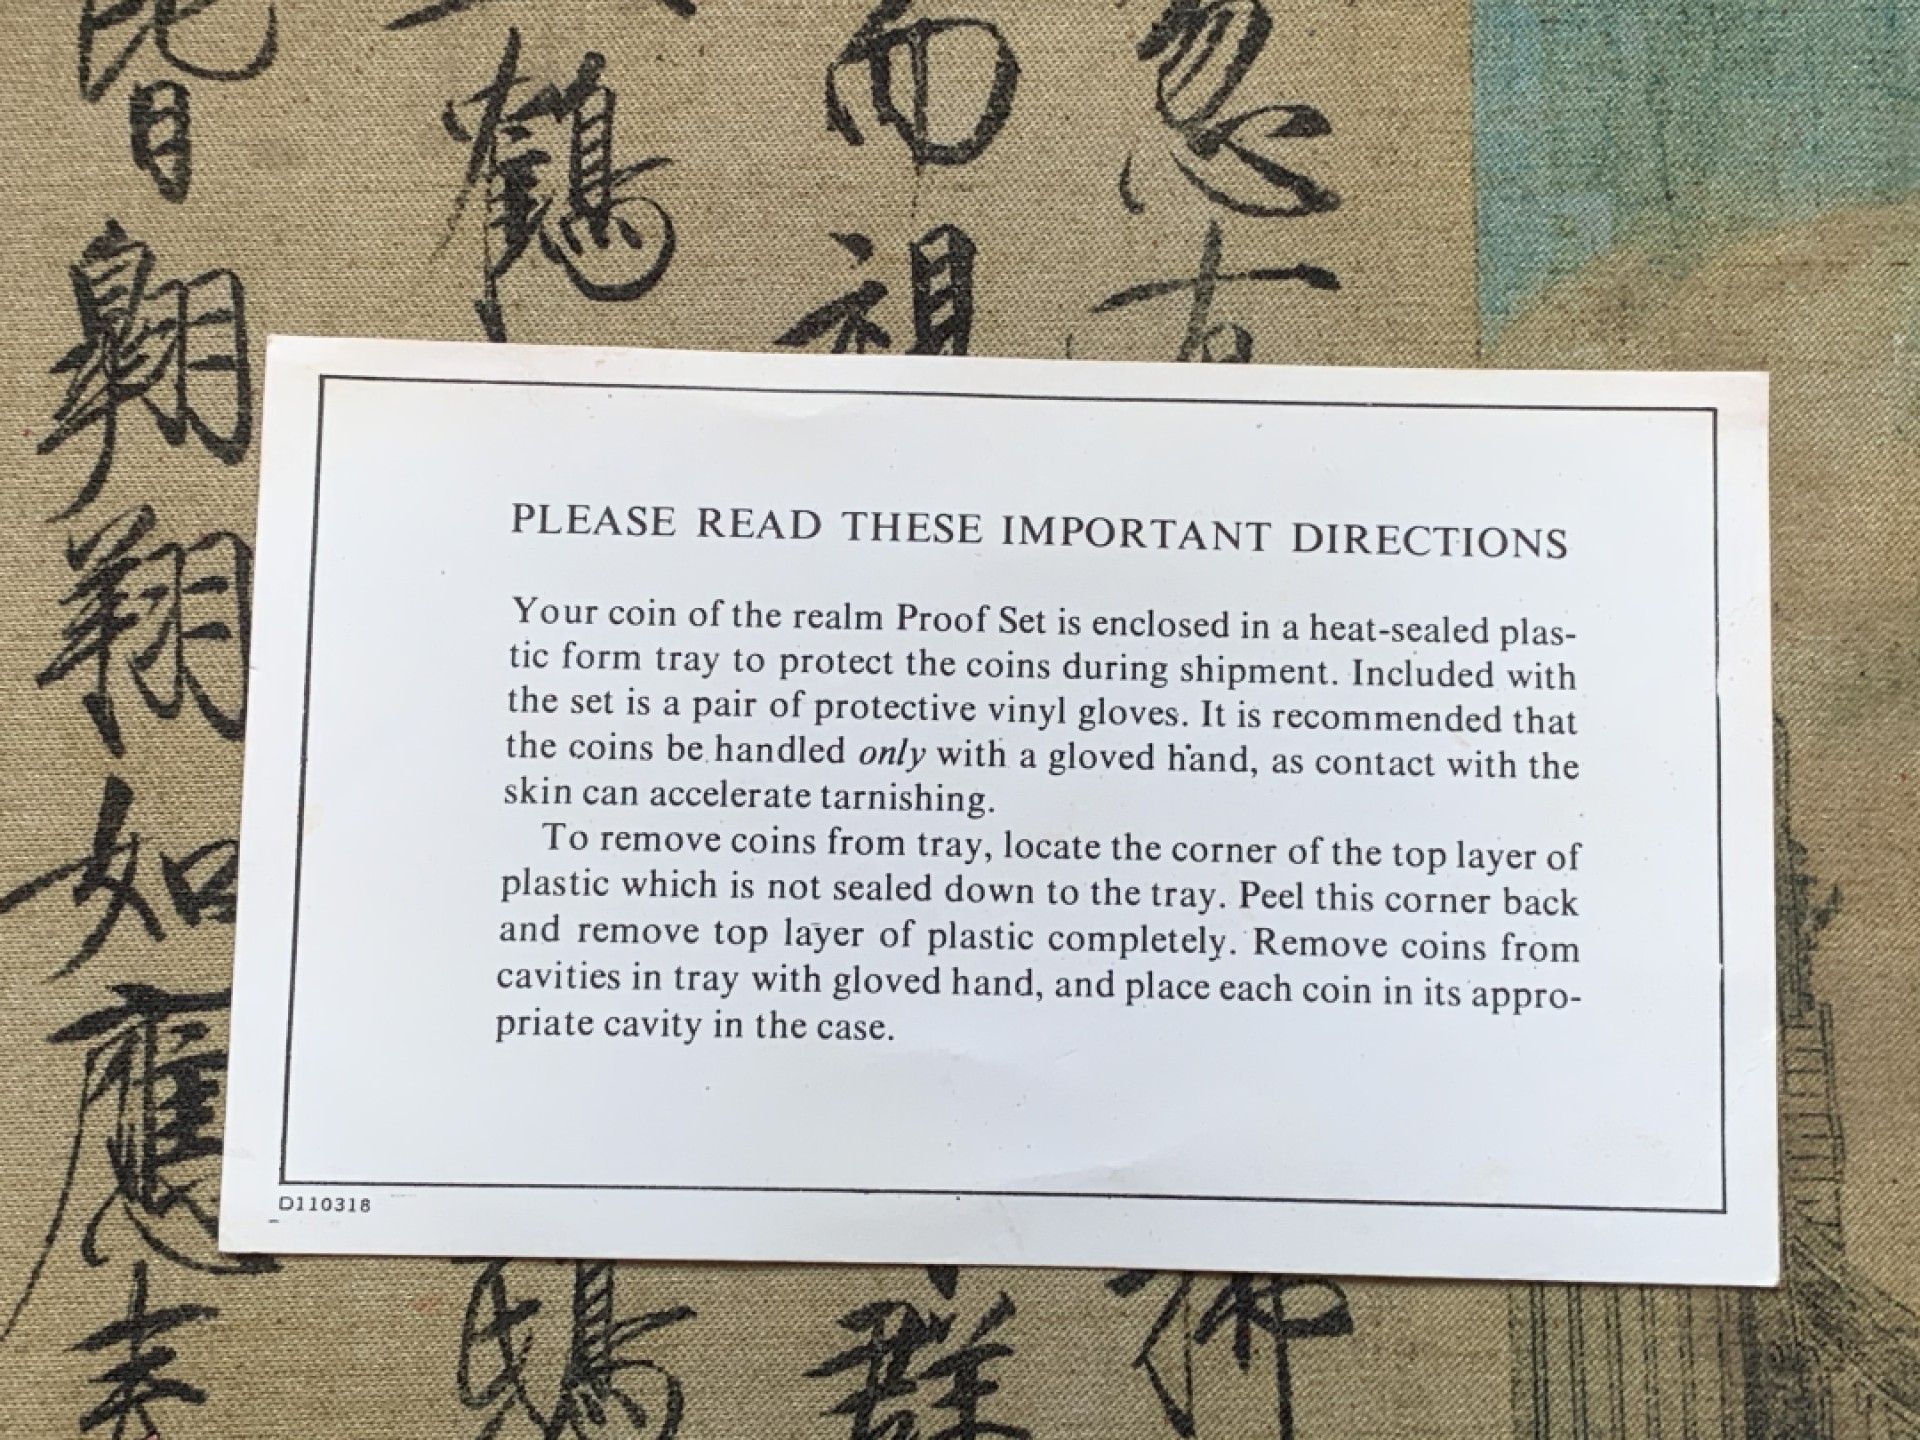 PLEASE READ THESE IMPORTANT DIRECTIONS
Your coin of the realm Proof Set is enclosed in a heat-sealed plas-
tic form tray to protect the coins during shipment. Included with
the set is a pair of protective vinyl gloves. It is recommended that
the coins be handled only with a gloved hand, as contact with the
skin can accelerate tarnishing.
To remove coins from tray, locate the corner of the top layer of
plastic which is not sealed down to the tray. Peel this corner back
and remove top layer of plastic completely. Remove coins from
cavities in tray with gloved hand, and place each coin in its appro-
priate cavity in the case.
D110318
忽有
拂
而視
群
鶴
鴟
皆翱翔如應奏